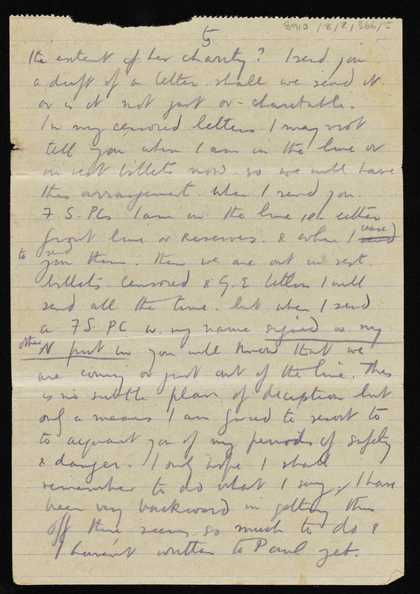 5
the extent of her charity? I send you
a draft of a letter shall we send it
or is it not just or charitable.
In my censored letters I may not
tell you when I am in the line or
in rest billets now. so we will have
this arrangement. When I send you
F.S. PCs I am in the line in either
front line or Reserves. & when I cease
to send you them. then we are out in rest
billets. Censored & G.E letters I will
send all the time. but when I send
a F.S. PC w. my name signed as my
other N put in you will know that we
are coming or just out of the line. This
is no subtle plan of deception but
only a means I am forced to resort to
to acquaint you of my periods of safety
& danger. I only hope I shall
remember to do what I say, I have
been very backward in getting this
off there seems so much to do &
I haven't written to Paul yet.